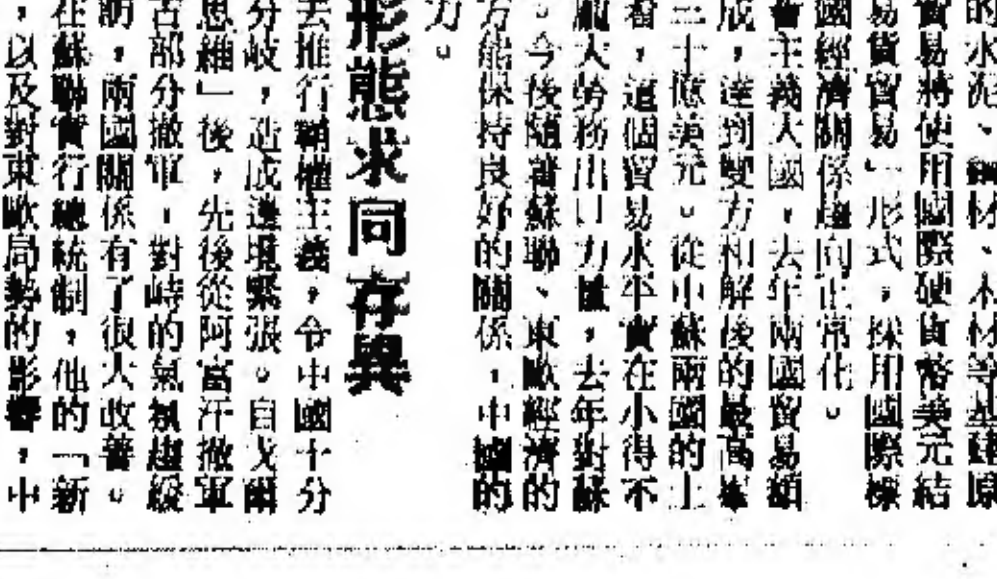 的水泥、鋼材、木材等基建原
貿易將使用國際硬貨幣美元結
易貨貿易」形式，採用國際標
國經濟關係趨向正常化。
會主義大國，去年兩國貿易額
成，達到雙方和解後的最高峯
三十億美元。從中蘇兩國的土
看，這個貿易水平實在小得不
龐大勞務出口力量，去年對蘇
。今後隨著蘇聯、東歐經濟的
方能保持良好的關係，中國的
力。
形態求同存異
去推行霸權主義，令中國十分
分歧，造成邊境緊張。自戈爾
思維」後，先後從阿富汗撤軍
古部分撤軍，對峙的氣氛趨緩
訪，兩國關係有了很大改善。
在蘇聯實行總統制，他的「新
，以及對東歐局勢的影響，中